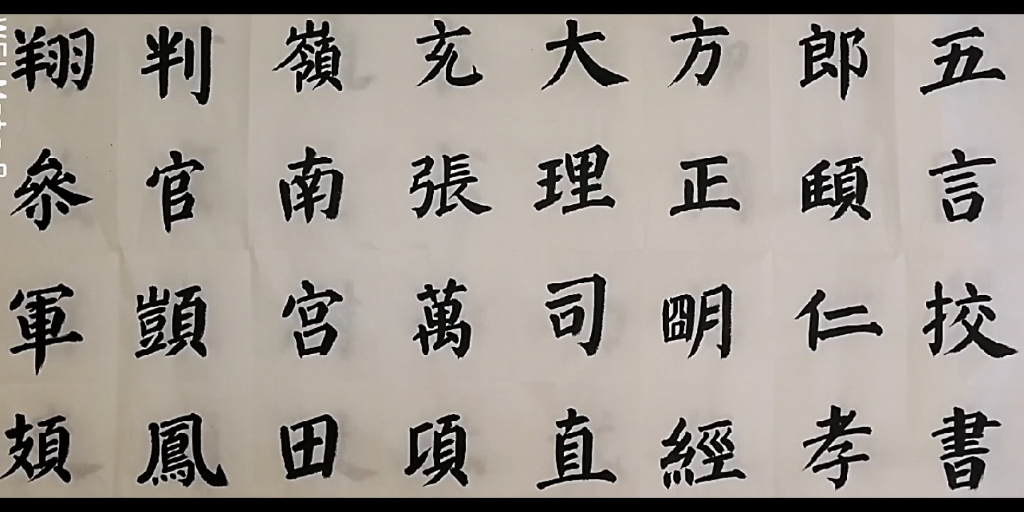 五言挍書
郎頤仁孝
方正朙經
大理司直
充張萬頃
嶺南宫田
判官顗鳳
翔叅軍頍